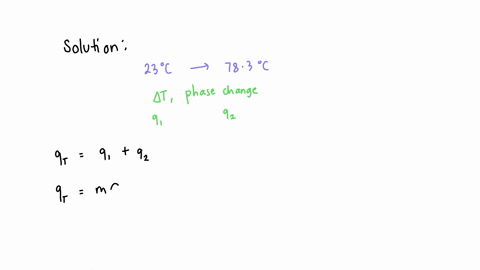 Solution:
23°C → 78.3°C
ΔT, phase change
q₁ q₂
q_T = q₁ + q₂
q_T = m